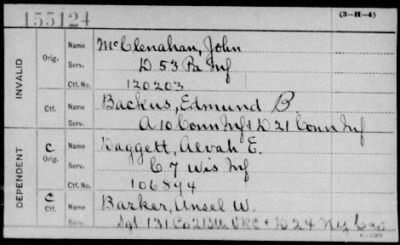 155124
(3-H-4)
INVALID
Orig. Name McClenahan, John
Serv. D 53 Pa Inf
Ctf. No. 120203
Ctf. Name Backus, Edmund B.
A 10 Conn Inf + D 21 Conn Inf
DEPENDENT
C Name Daggett, Alvah E.
Orig. Serv. C 7 Wis Inf
Ctf. No. 106894
C Name Barker, Ansel W.
Ctf. Serv. Sgt 131 Co 2 Btl VRC + D 24 NY Cav